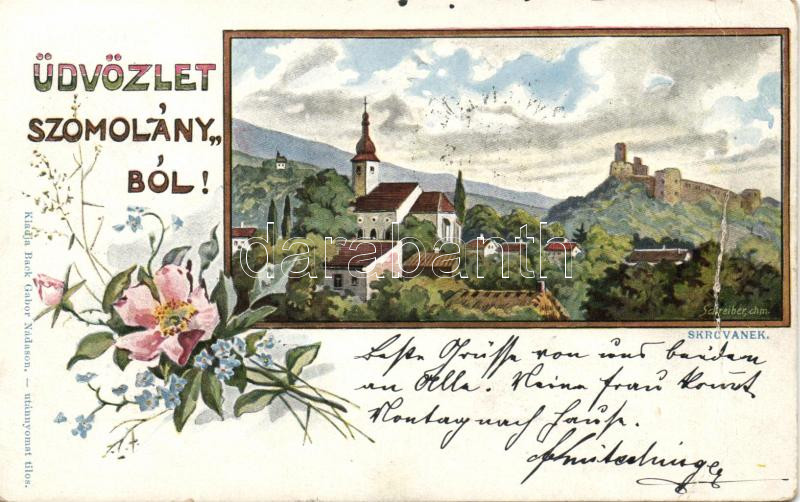 ÜDVÖZLET
SZOMOLÁNY„
BÓL!
Kiadja Back Gabor Nádason. — utánnyomat tilos.
darabanth
Schreiber, chm.
SKROVANEK.
Beste Grüsse von uns beiden
an Alle. Meine Frau kommt
Montag nach Hause.